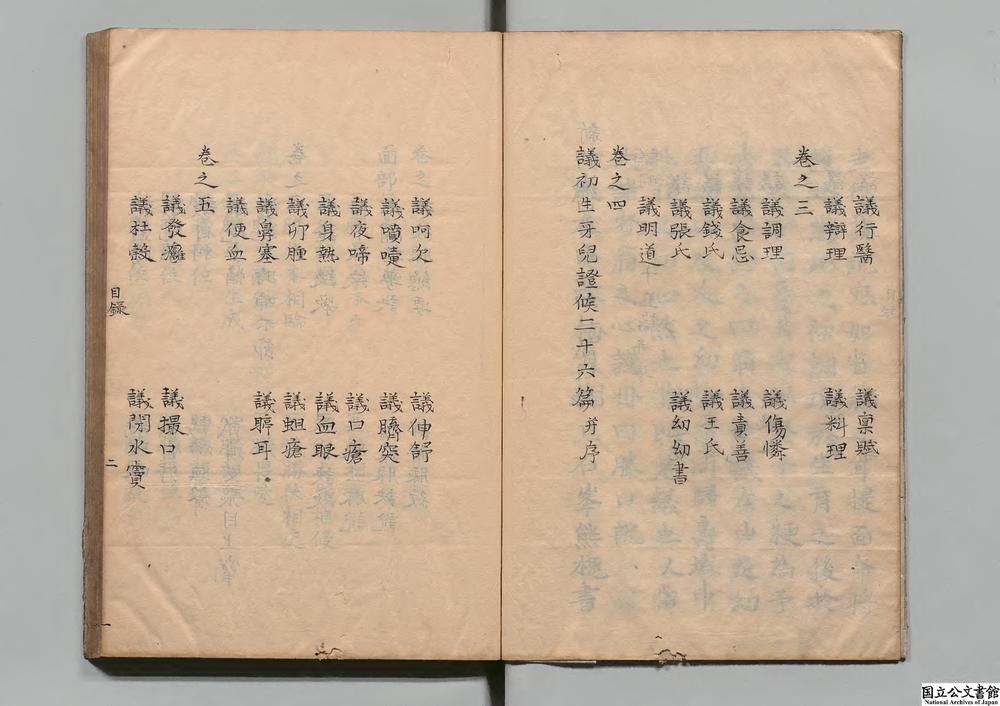 議行醫 議稟賦
議辯理 議料理
卷之三
議調理 議傷憐
議食忌 議責善
議錢氏 議王氏
議張氏 議幼幼書
議明道
卷之四
議初生牙兒證候二十六篇 并序
議呵欠 議伸舒
議噴嚏 議臍突
議夜啼 議口瘡
議身熱 議血眼
議卯腫 議蛆瘡
議鼻塞 議聤耳
議便血
卷之五
議發癰 議撮口
議杜殼 議閉水竇
目錄 二
国立公文書館
National Archives of Japan